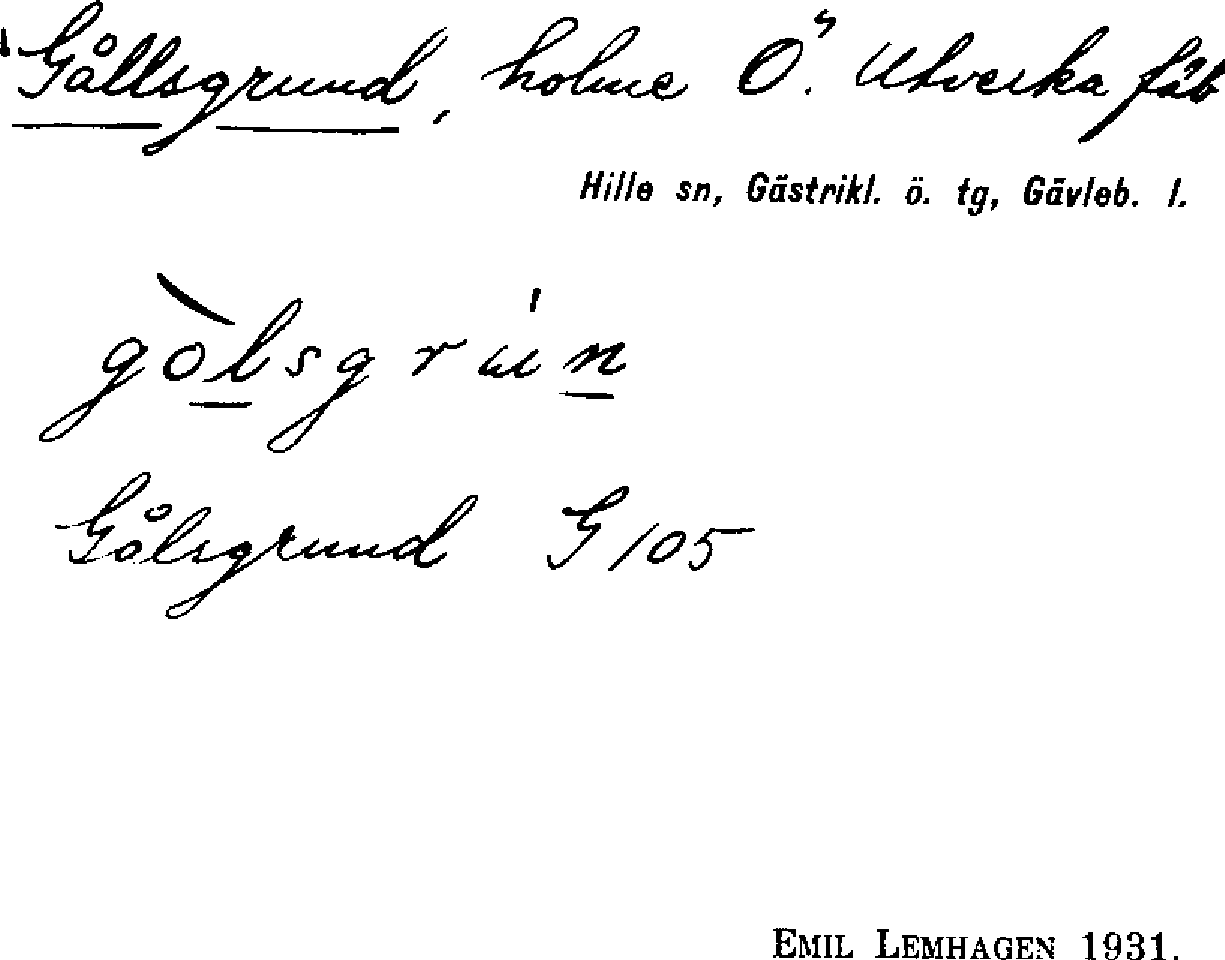 Gållsgrund, holme Ö. Utverka fäb
Hille sn, Gästrikl. ö. tg, Gävleb. l.
gòlsgrun
Gålsgrund G 105
EMIL LEMHAGEN 1931.